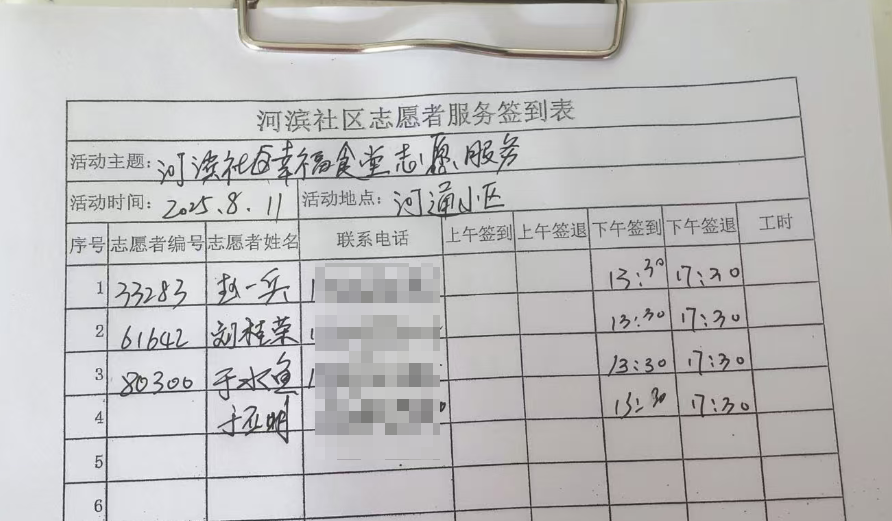 河滨社区志愿者服务签到表
活动主题: 河滨社区幸福食堂志愿服务
活动时间: 2025.8.11 活动地点: 河通小区
序号 志愿者编号 志愿者姓名 联系电话 上午签到 上午签退 下午签到 下午签退 工时
1 33283 赵一兵 13:30 17:30
2 61642 刘桂荣 13:30 17:30
3 80300 于水鱼 13:30 17:30
4 于亚明 13:30 17:30
5
6